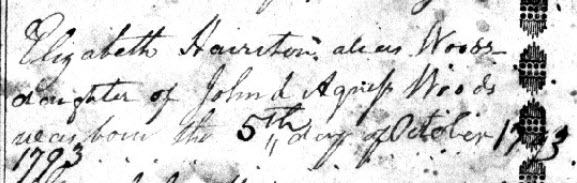 Elizabeth Hairston. alias Woods
daughter of John & Agness Woods
was born the 5th day of October 1793
1793